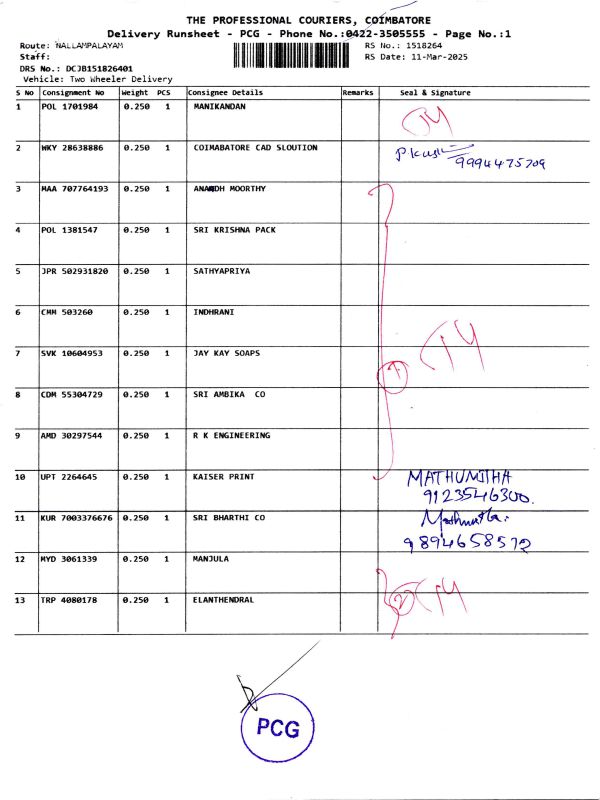 THE PROFESSIONAL COURIERS, COIMBATORE
Delivery Runsheet - PCG - Phone No.:0422-3505555 - Page No.:1
Route: NALLAMPALAYAM RS No.: 1518264
Staff: RS Date: 11-Mar-2025
DRS No.: DCJB151826401
Vehicle: Two Wheeler Delivery
S No Consignment No Weight PCS Consignee Details Remarks Seal & Signature
1 POL 1701984 0.250 1 MANIKANDAN
2 WKY 28638886 0.250 1 COIMABATORE CAD SLOUTION
9994475709
3 MAA 707764193 0.250 1 ANANDH MOORTHY
4 POL 1381547 0.250 1 SRI KRISHNA PACK
5 JPR 502931820 0.250 1 SATHYAPRIYA
6 CMM 503260 0.250 1 INDHRANI
7 SVK 10604953 0.250 1 JAY KAY SOAPS
8 CDM 55304729 0.250 1 SRI AMBIKA CO
9 AMD 30297544 0.250 1 R K ENGINEERING
10 UPT 2264645 0.250 1 KAISER PRINT MATHUMITHA
9123546300.
11 KUR 7003376676 0.250 1 SRI BHARTHI CO
9894658572
12 MYD 3061339 0.250 1 MANJULA
13 TRP 4080178 0.250 1 ELANTHENDRAL
PCG